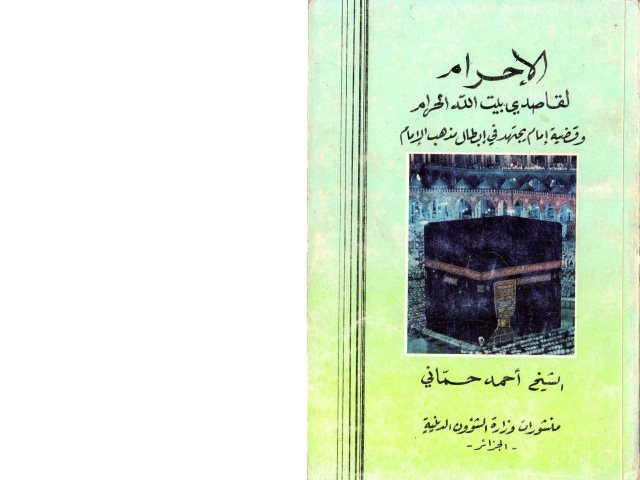 الإحرام
لقاصدي بيت الله الحرام
وقضية إمام يجتهد في إبطال مذهب الإمام
الشيخ أحمد حمّاني
منشورات وزارة الشؤون الدينية
- الجزائر -